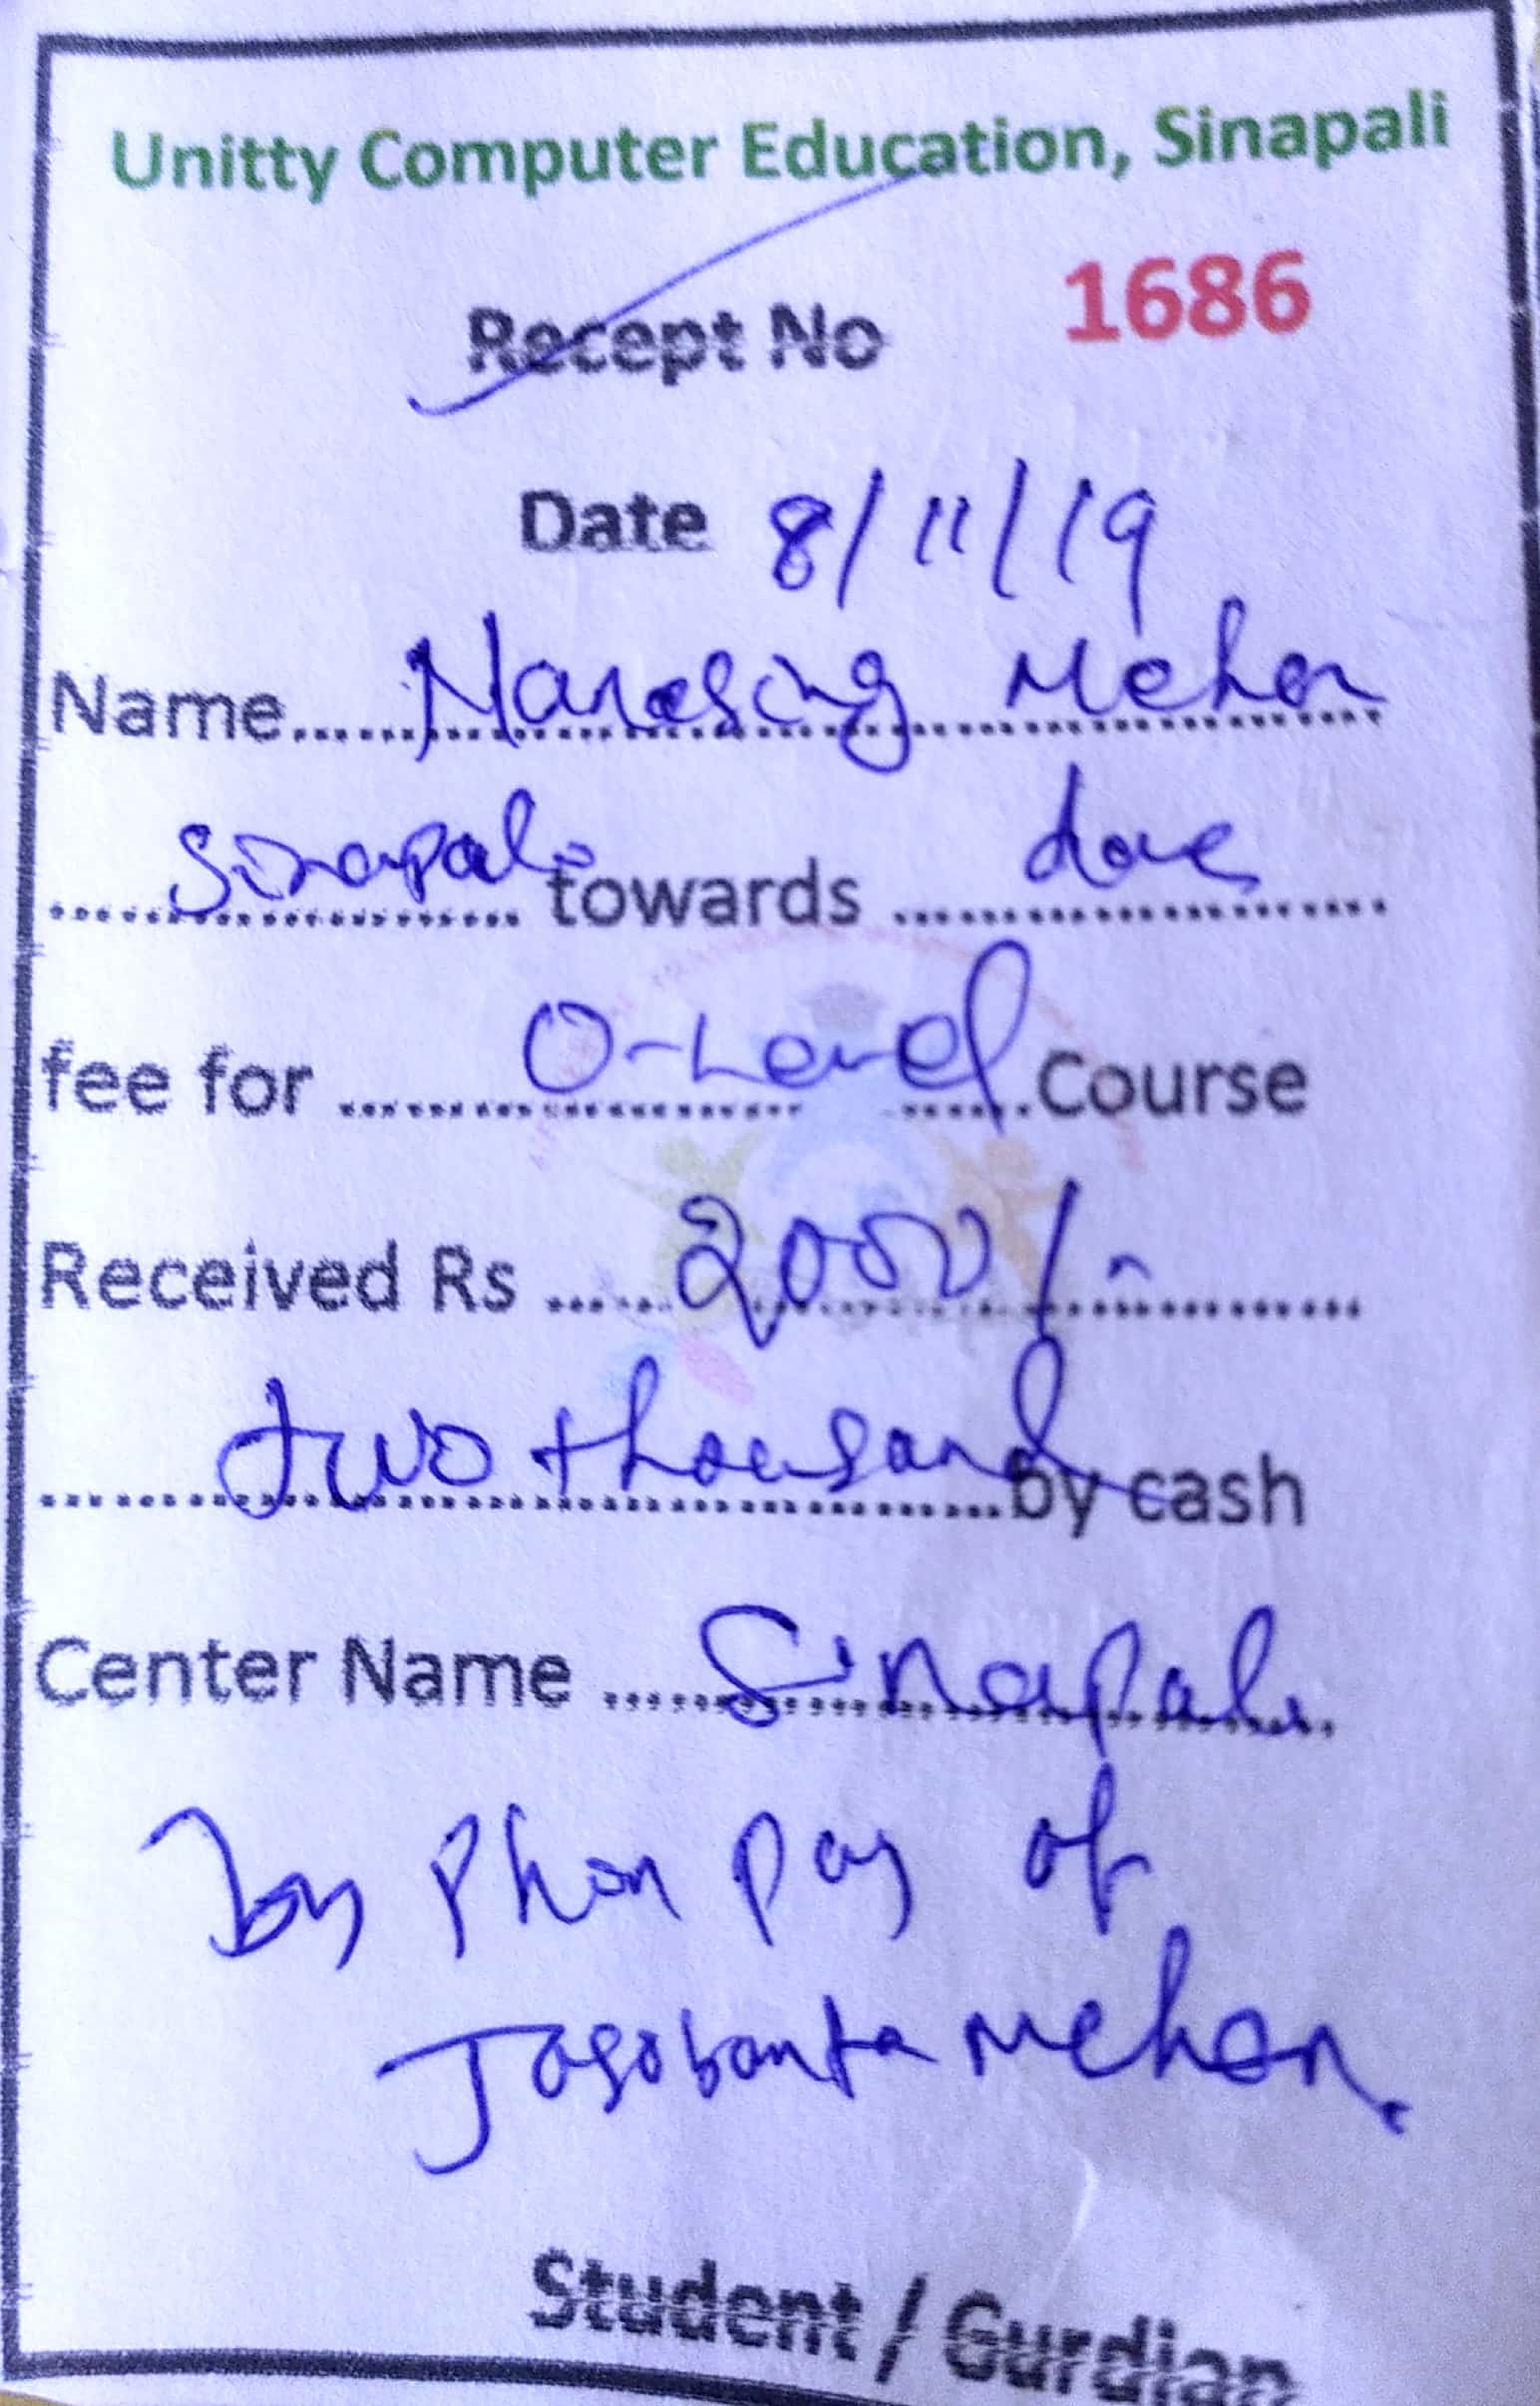 Unitty Computer Education, Sinapali
Recept No 1686
Date 8/11/19
Name......Narasing Meher
Sinapali towards ...... due
fee for ...... O-Level ......Course
Received Rs ...... 2000/-
two thousand ......by cash
Center Name ...... Sinapali
by Phon pay of
Jasobanta Meher.
Student / Gurdian